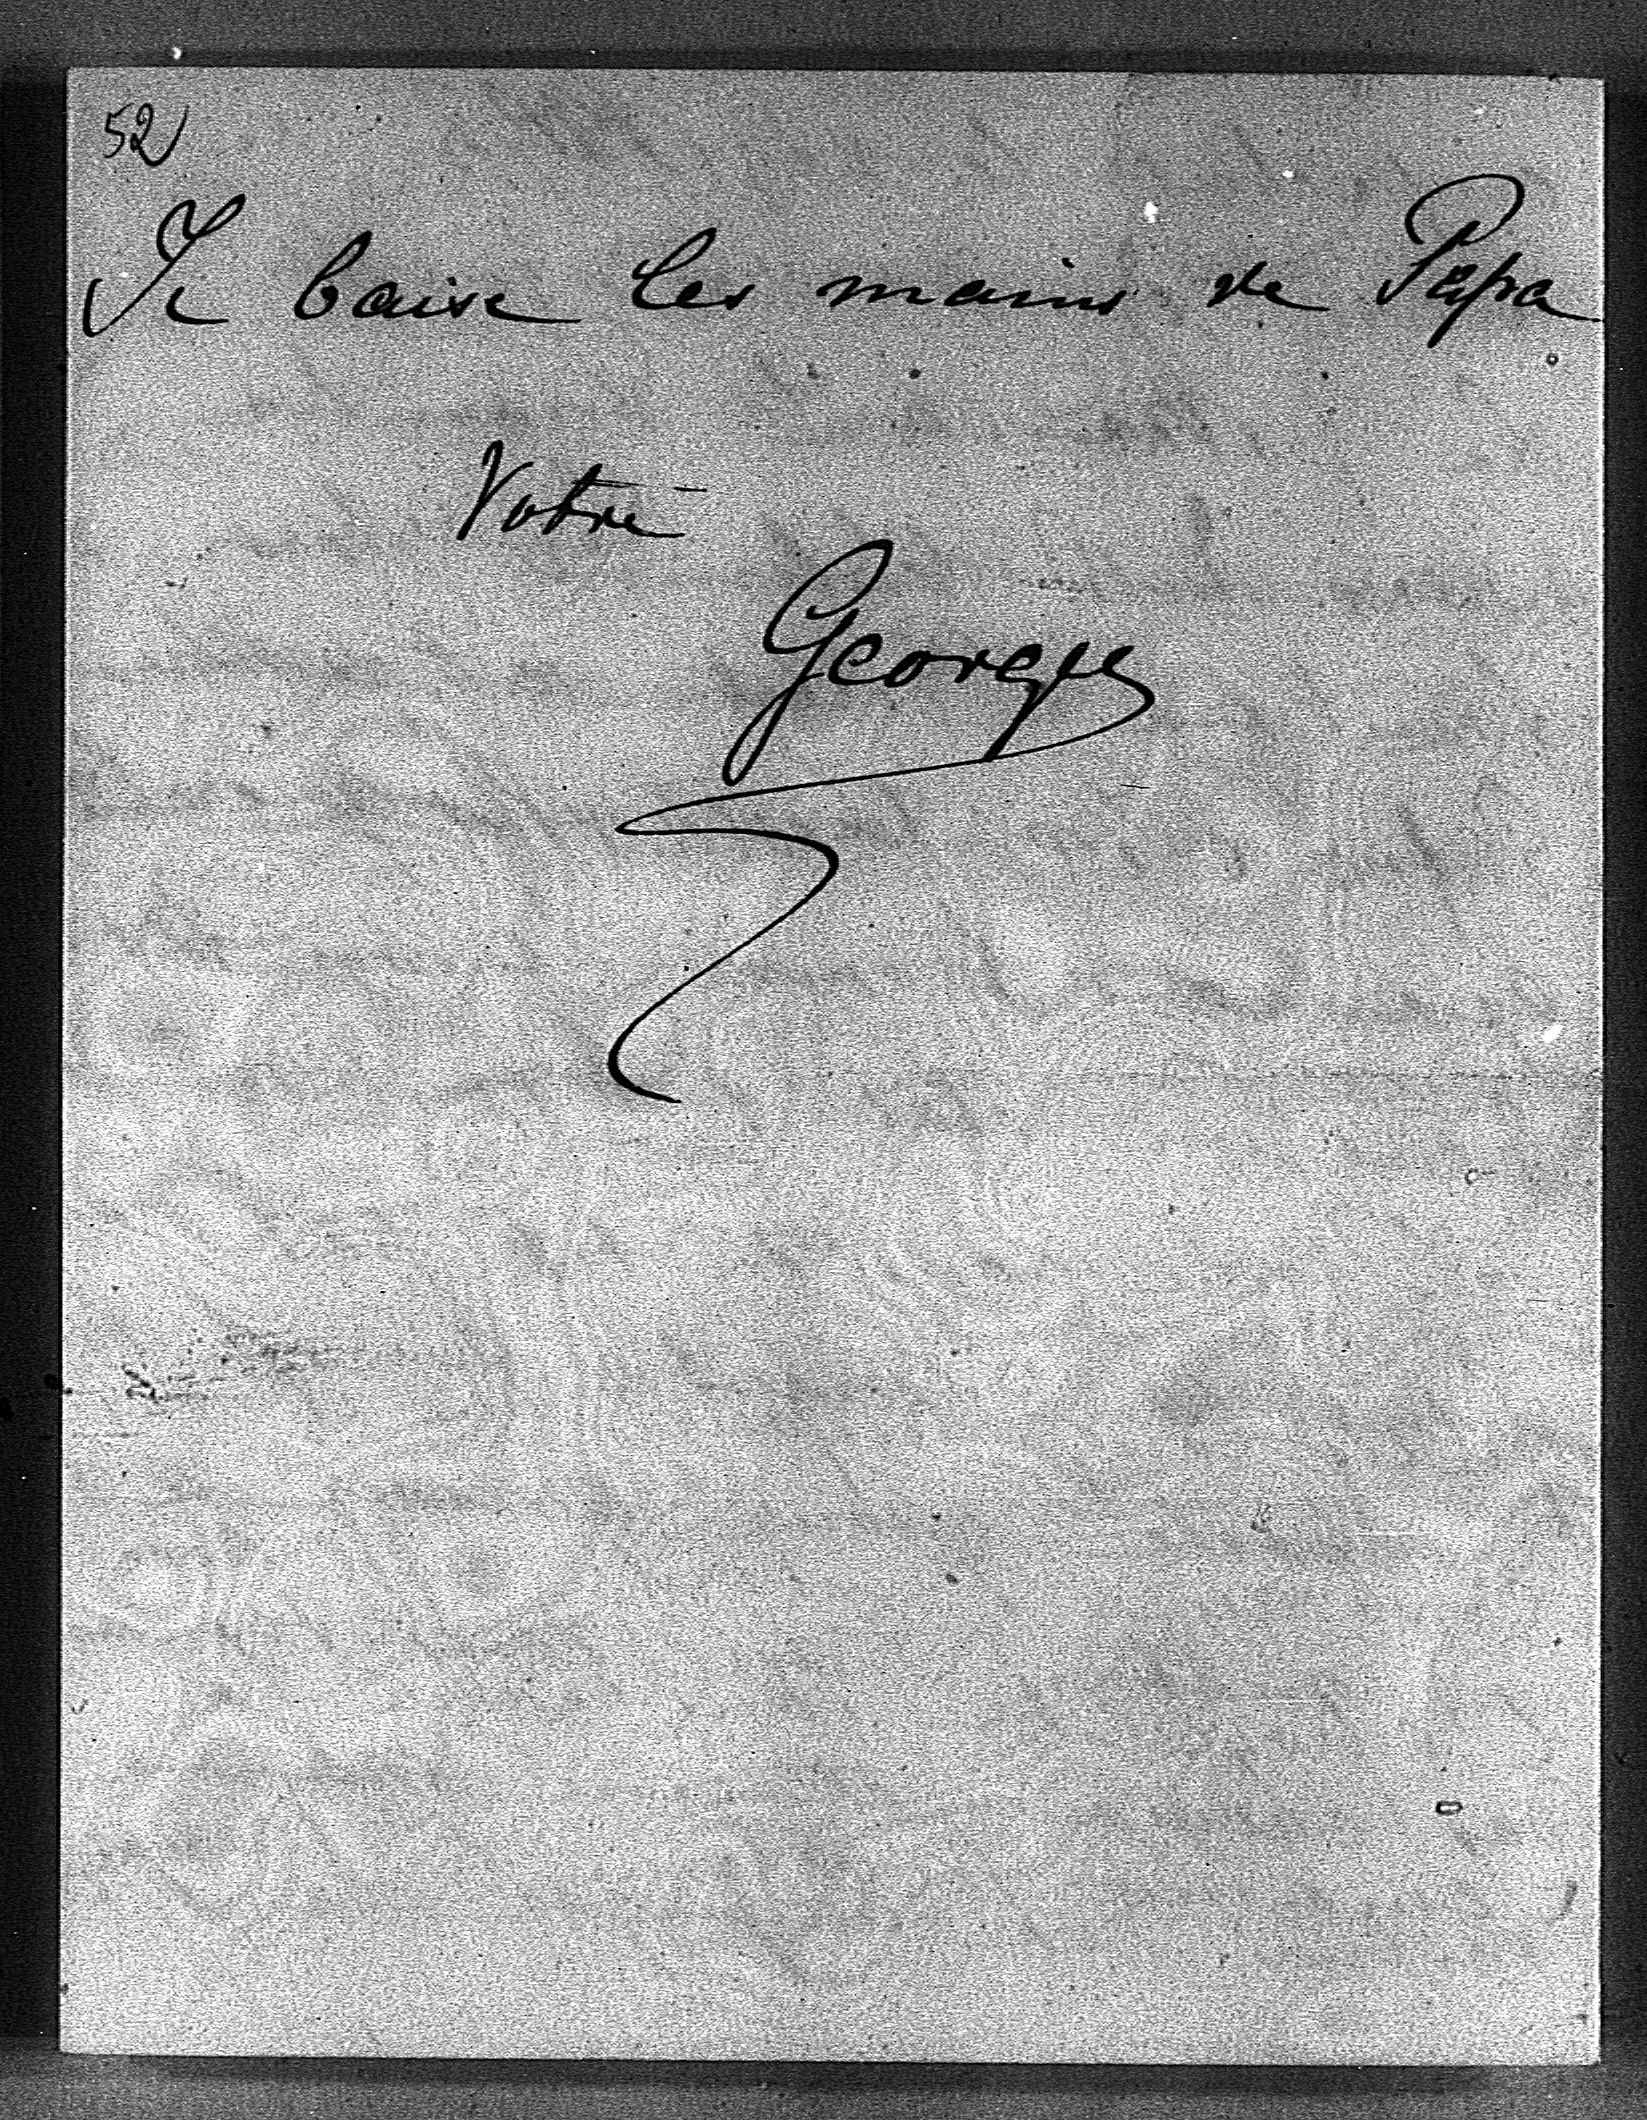 52
Je baise les mains de Papa
Votre
Georges